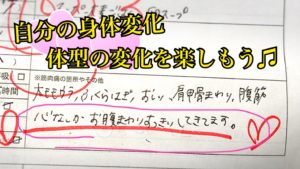 自分の身体変化
体型の変化を楽しもう♫
※筋肉痛の箇所やその他
太ももウラ、ふくらはぎ、おしり、肩甲骨まわり、腹筋
心なしか お腹まわりすっきりしてきてます。